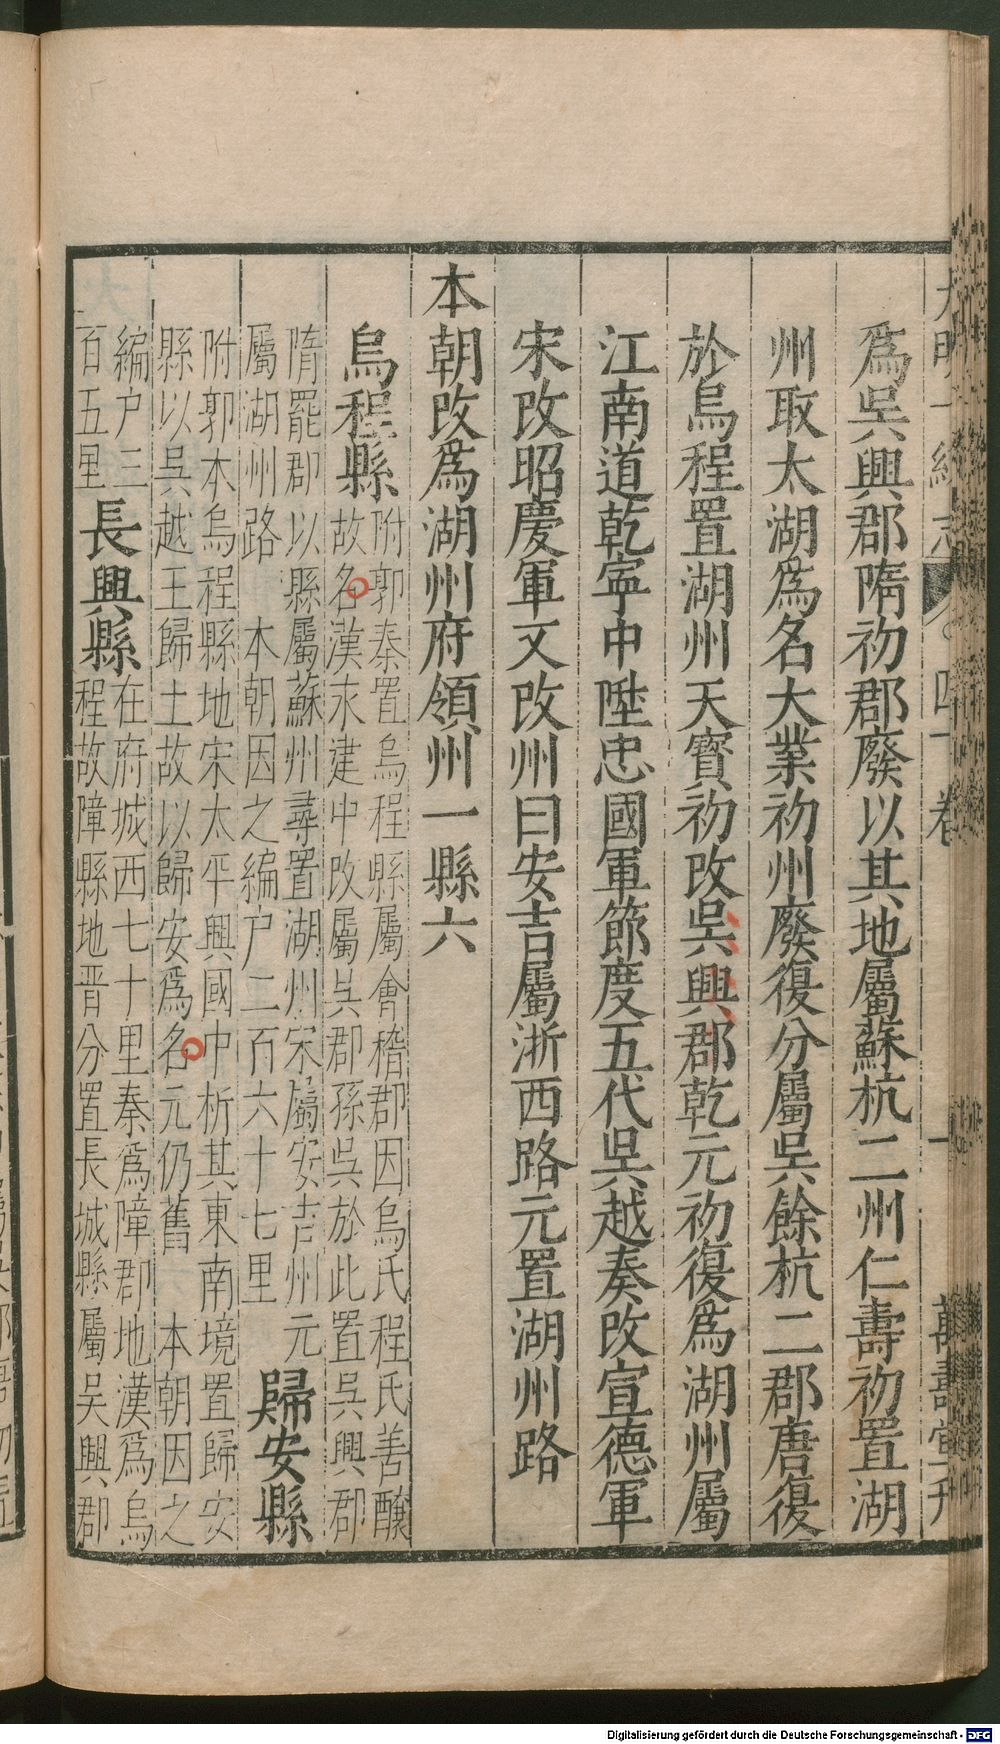 爲吳興郡隋初郡廢以其地屬蘇杭二州仁壽初置湖
州取太湖爲名大業初州廢復分屬吳餘杭二郡唐復
於烏程置湖州天寳初改吳興郡乾元初復爲湖州屬
江南道乾寧中陞忠國軍節度五代吳越奏改宣德軍
宋改昭慶軍又改州曰安吉屬浙西路元置湖州路
本朝改爲湖州府領州一縣六
烏程縣
附郭秦置烏程縣屬會稽郡因烏氏程氏善釀
故名漢永建中改屬吳郡孫吳於此置吳興郡
隋罷郡以縣屬蘇州尋置湖州宋屬安吉州元
屬湖州路 本朝因之編户二百六十七里
歸安縣
附郭本烏程縣地宋太平興國中析其東南境置歸安
縣以吳越王歸土故以歸安爲名元仍舊 本朝因之
編户三
百五里
長興縣
在府城西七十里秦爲障郡地漢爲烏
程故障縣地晋分置長城縣屬吴興郡
Digitalisierung gefördert durch die Deutsche Forschungsgemeinschaft - DFG